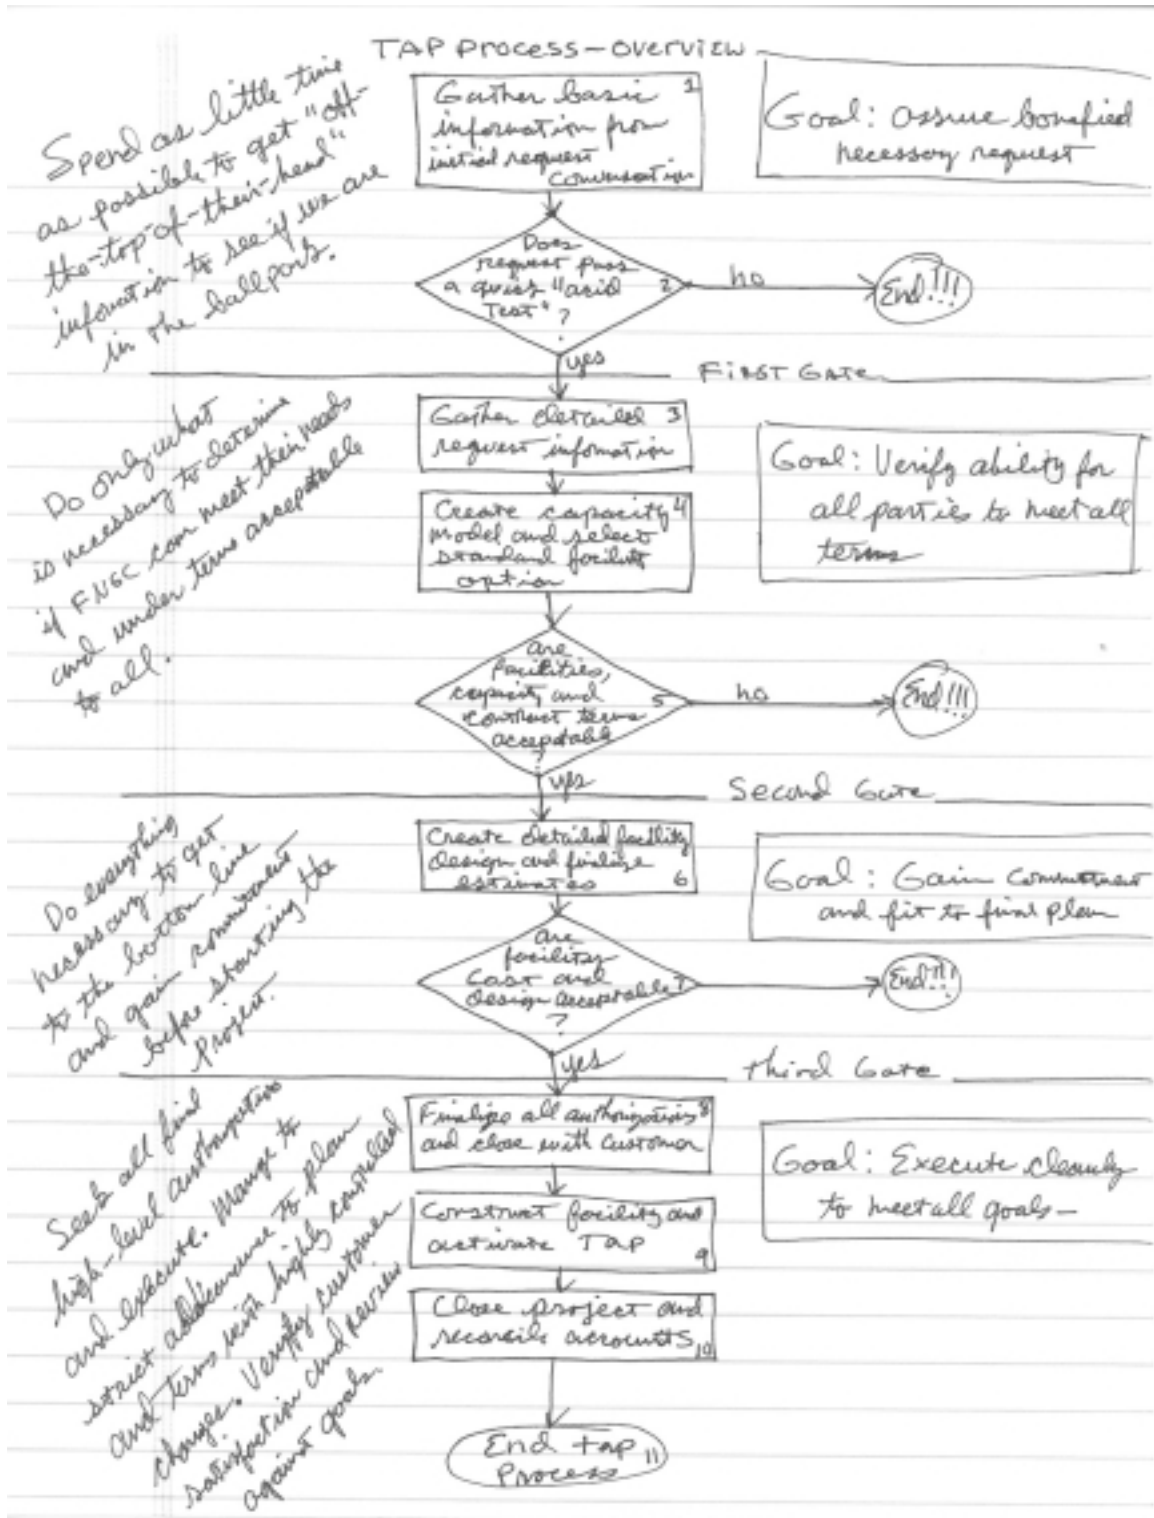 TAP PROCESS - OVERVIEW
Spend as little time
as possible to get "off-
the-top-of-their-head"
information to see if we are
in the ballpark.
Gather basic 1
information from
initial request
conversation
Goal: assure bonafied
necessary request
Does
request pass
a quick "acid 2
Test"
?
no
End!!!
yes
FIRST GATE
Do only what
is necessary to determine
if FNGC can meet their needs
and under terms acceptable
to all.
Gather detailed 3
request information
Create capacity 4
model and select
standard facility
option
Goal: Verify ability for
all parties to meet all
terms
are
facilities,
capacity and 5
contract terms
acceptable
?
no
End!!!
yes
Second Gate
Do everything
necessary to get
to the bottom line
and gain commitment
before starting the
project.
Create detailed facility
design and finalize
estimates 6
Goal: Gain commitment
and fit to final plan
are
facility
cost and
design acceptable 7
?
End!!!
yes
third Gate
Seek all final
high-level authorization
and execute. Manage to
strict adherence to plan
and terms with highly controlled
changes. Verify customer
satisfaction and review
against goals.
Finalize all authorizations 8
and close with customer
Construct facility and
activate TAP 9
Close project and
reconcile accounts 10
Goal: Execute cleanly
to meet all goals -
End tap 11
Process